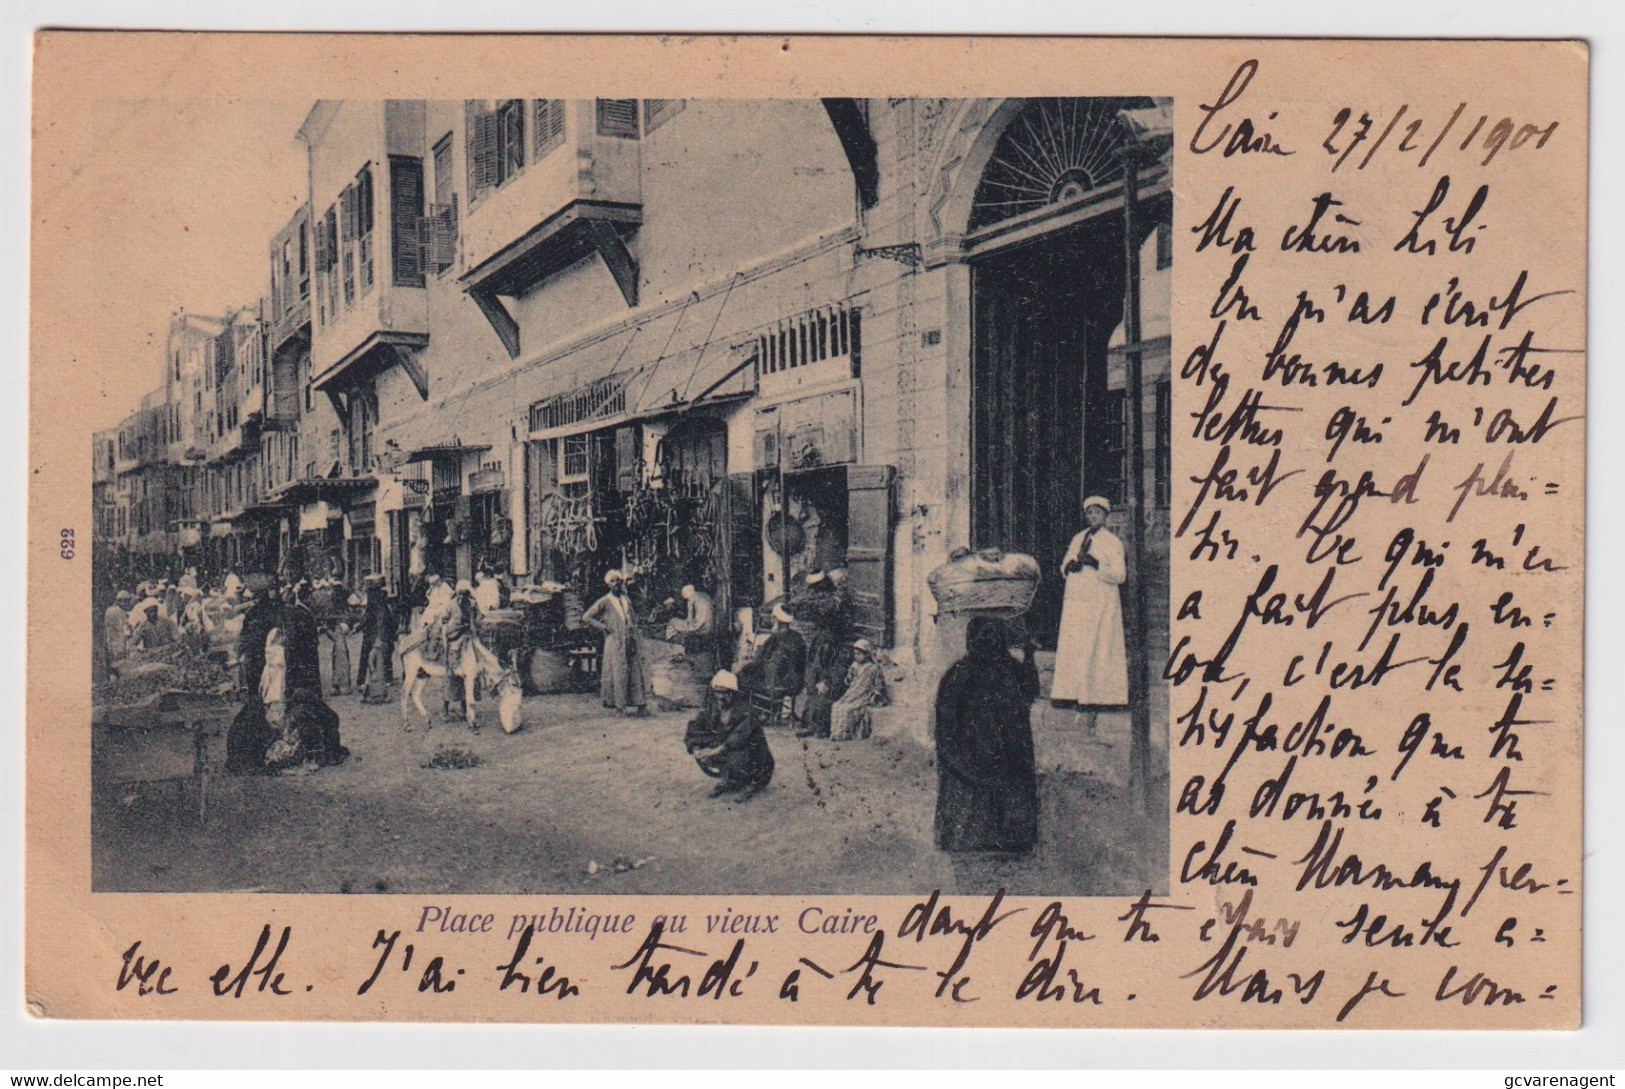 Caire 27/2/1901
Ma chère Lili
Tu m'as écrit
de bonnes petites
lettres qui m'ont
fait grand plai=
sir. Ce qui m'en
a fait plus en=
core, c'est la sa=
tisfaction que tu
as donnée à ta
chère Maman pen=
dant que tu étais seule a=
vec elle. J'ai bien tardé à te le dire. Mais je com=
Place publique au vieux Caire
622
gcvarenagent